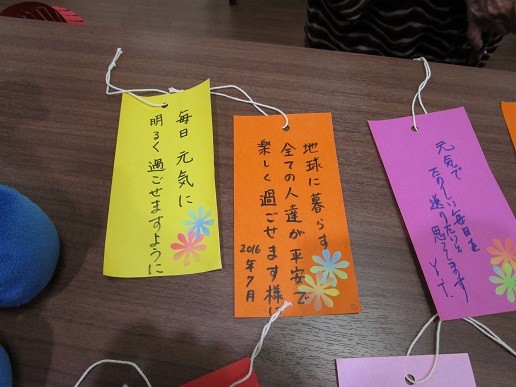 毎日 元気に
明るく過ごせますように
地球に暮らす
全ての人達が平安で
楽しく過ごせます様に
2016年7月
元気で
たのしい毎日を
送りたいと
思ってます
Y.T.